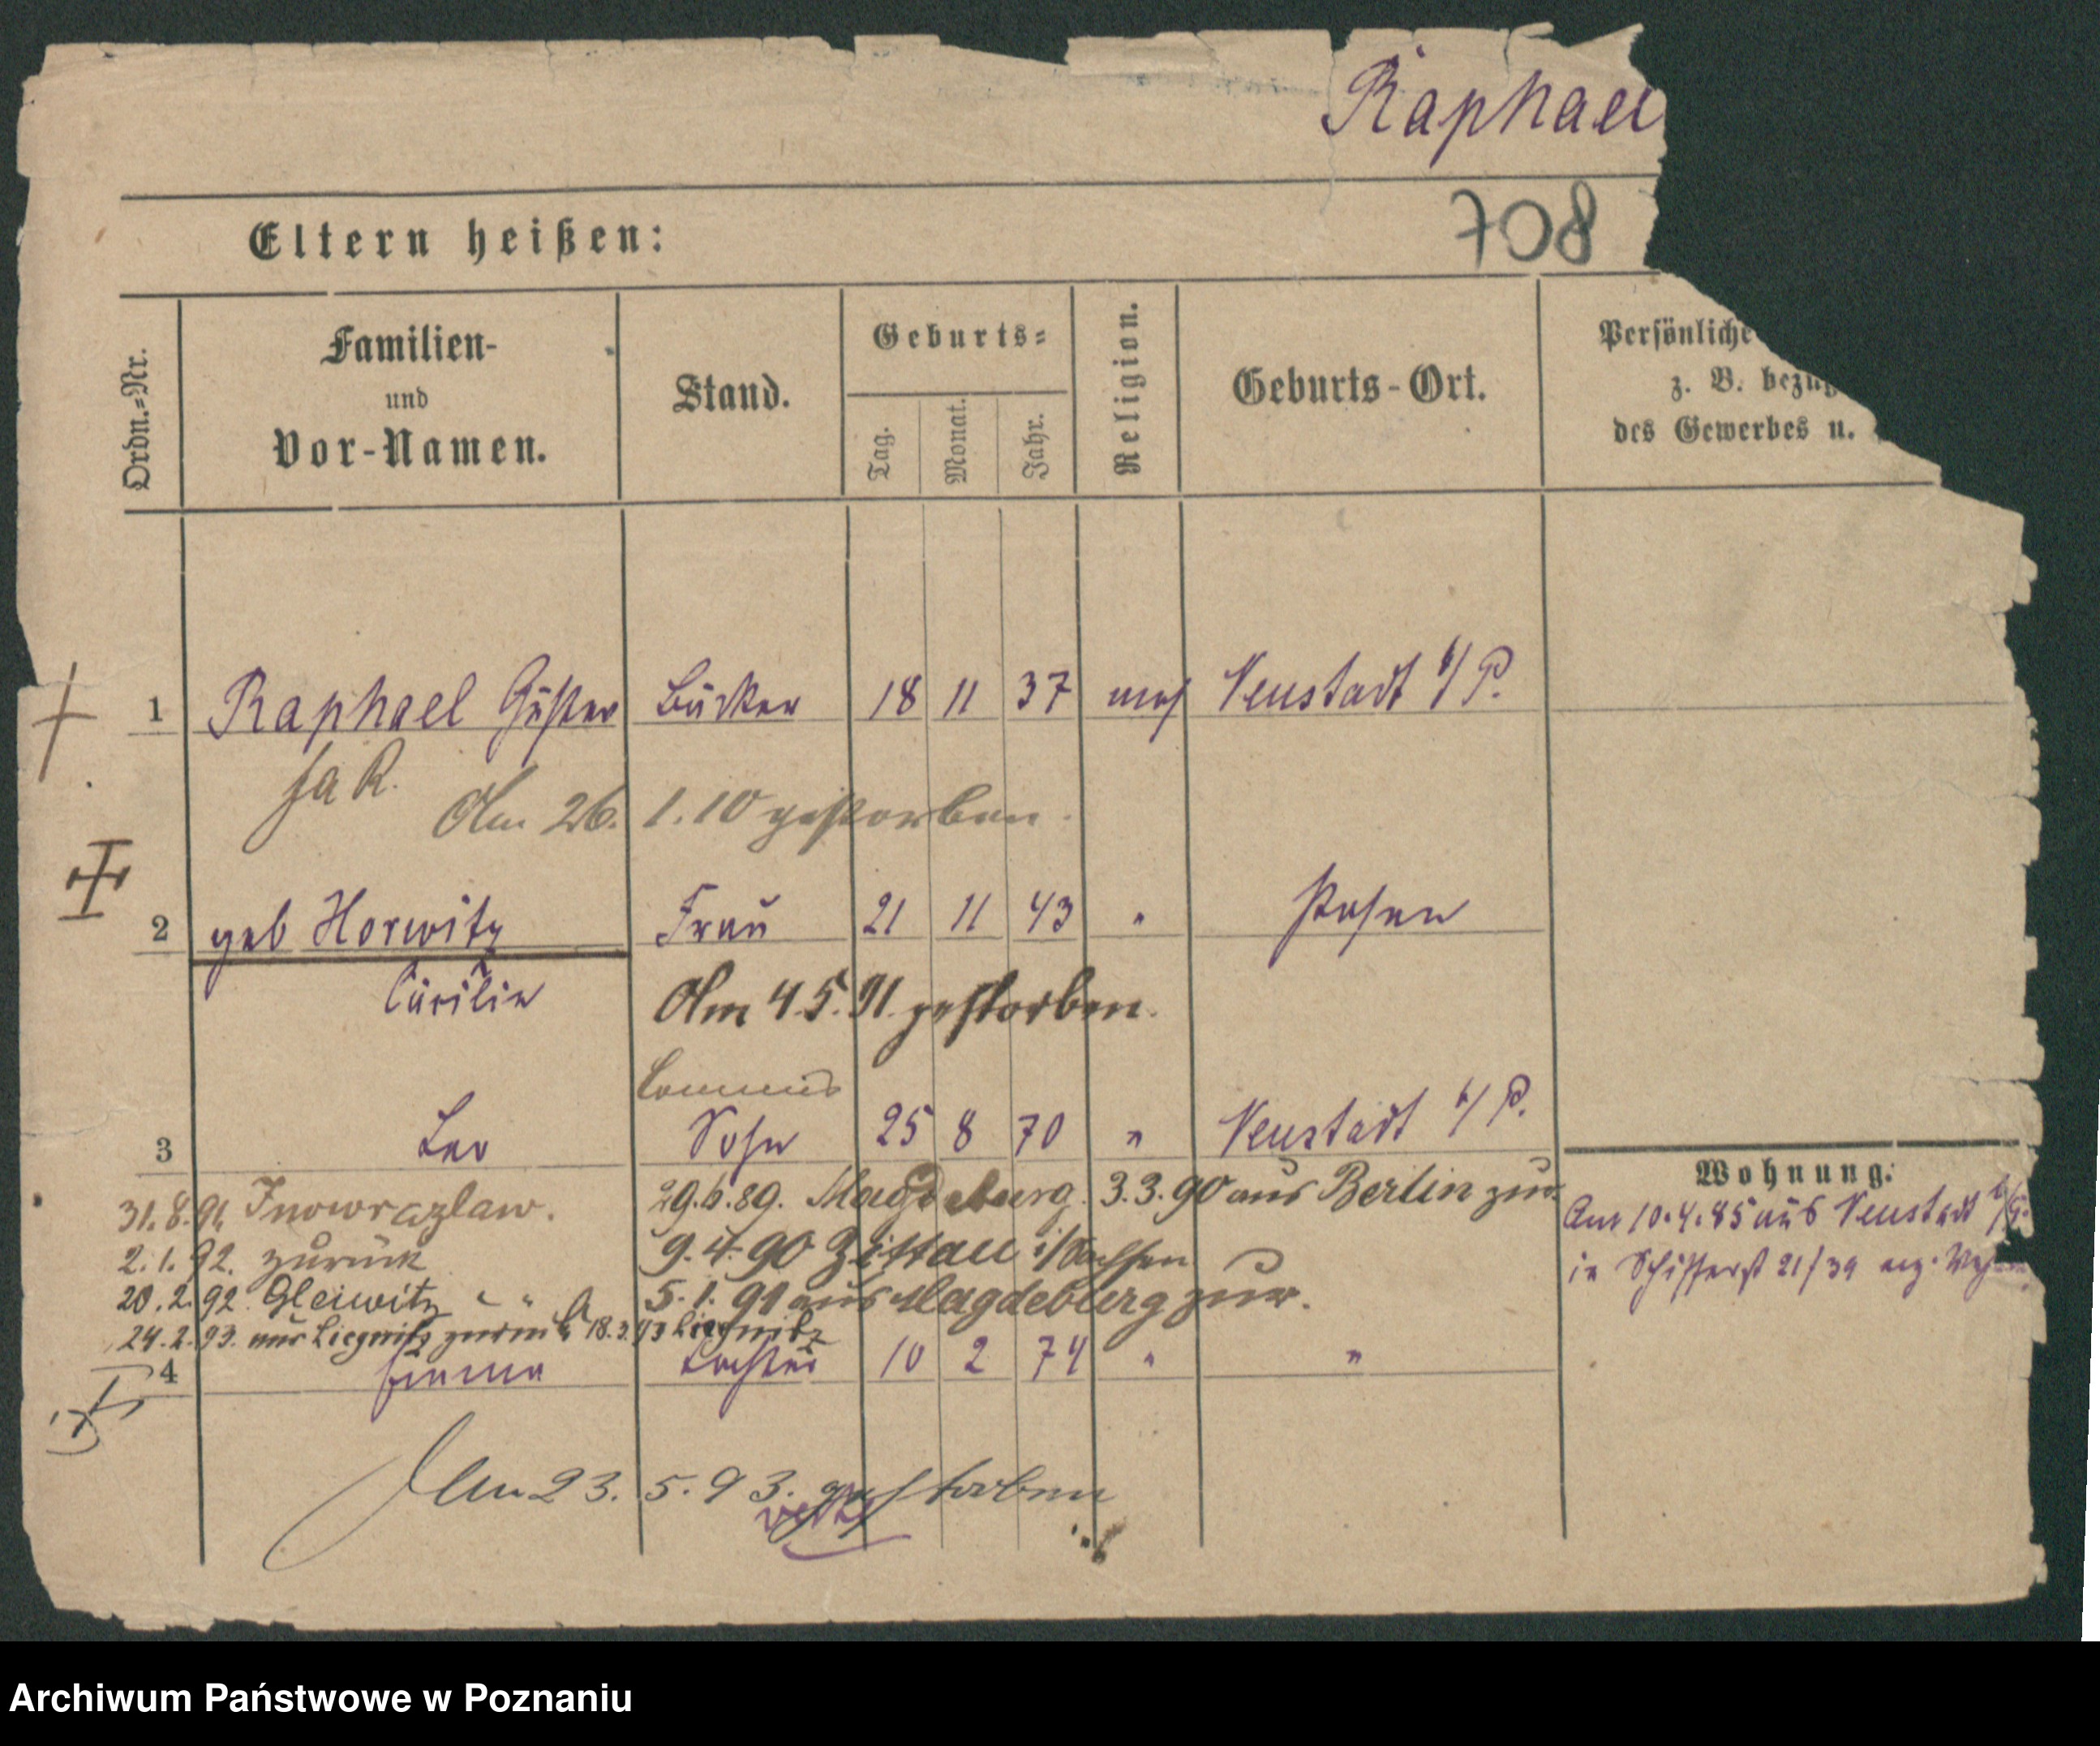 Raphael
708
Eltern heißen:
Ordn.=Nr.
Familien-
und
Vor-Namen.
Stand.
Geburts=
Tag.
Monat.
Jahr.
Religion.
Geburts-Ort.
Persönliche
z. B. bezüg
des Gewerbes u.
1 Raphael Bäcker 18 11 37 mos Neustadt b/P.
Am 26. 1. 10 gestorben.
2 geb Horwitz Frau 21 11 43 " Posen
Cäcilie Am 4.5.91. gestorben.
Commis
3 Leo Sohn 25 8 70 " Neustadt b/P.
31.8.91 Inowrazlaw. 29.6.89. Magdeburg. 3.3.90 aus Berlin zur.
2.1.92. zurück 9.4.90 Zittau i/Sachsen
20.2.92. Gleiwitz 5.1.91 aus Magdeburg zur.
24.2.93. aus Liegnitz zurück 18.3.93 Liegnitz
4 Emma Tochter 10 2 74 " "
Am 23. 5. 93. gestorben
Wohnung.
Am 10.4.85 aus Neustadt b/P.
in Schifferst 21/39
Archiwum Państwowe w Poznaniu